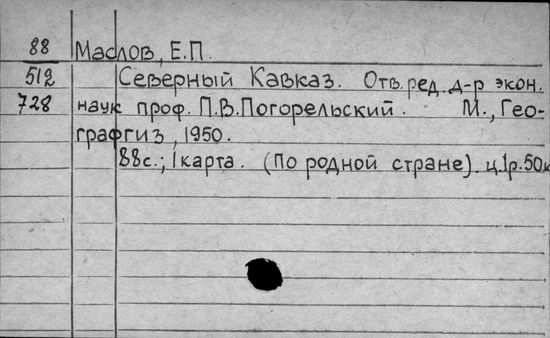 88 Маслов, Е.П.
512 Северный Кавказ. Отв. ред. д-р экон.
728 наук проф. П.В.Погорельский. М., Гео-
графгиз, 1950.
88с.; 1 карта. (По родной стране). ц.1р.50к